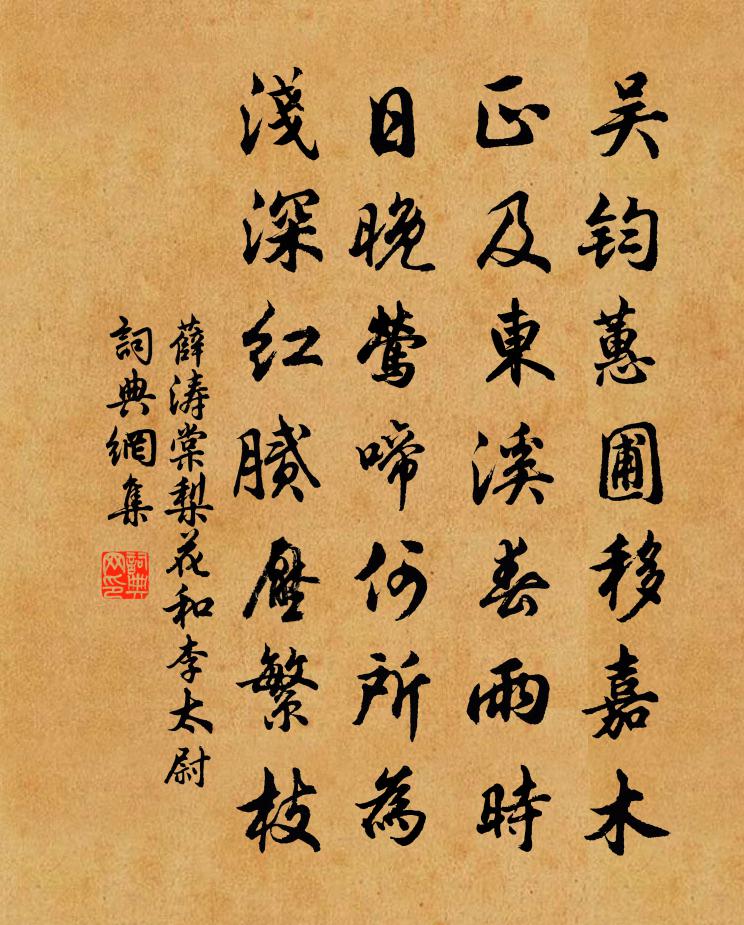 吴鈞蕙圃移嘉木
正及東溪春雨時
日晚鶯啼何所為
淺深紅膩壓繁枝
薛涛棠梨花和李太尉
詞典網集
詞典网印